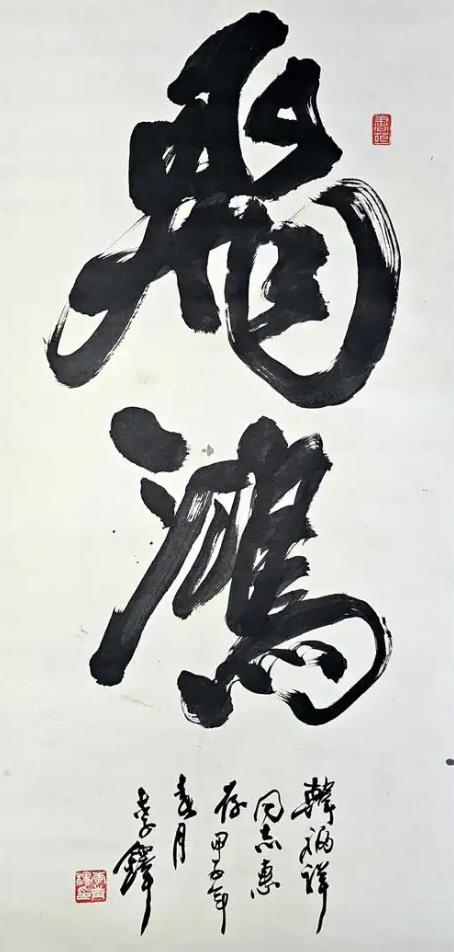 飛鴻
韓福祥
同志惠
存甲子年
春月
李鐸